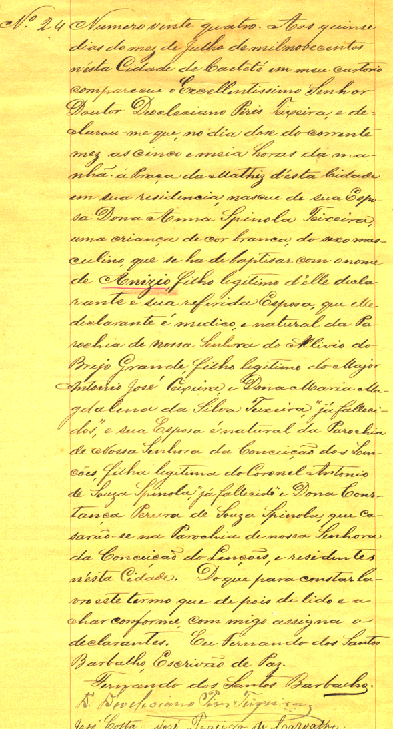 Nº 24 Numero vinte quatro. Aos quinse
dias do mez de Julho de mil nobecentos
nésta Cidade de Caeteté em meu cartorio
compareceu o Excellentissimo Senhor
Doutor Deocleciano Pires Teixeira, e de-
clarou-me que, no dia doze do corrente
mez, as cinco e meia horas da ma-
nhã, a Praça da Mathiz d'ésta Cidade
em sua residencia, nasceu de sua Espo-
sa Dona Anna Spinola Teixeira,
uma criança de cor branca, do sexo mas-
culino, que se ha de baptisar com o nome
de Anizio, filho legitimo d'élle decla-
rante e sua referida Esposa, que elle
declarante é medico, e natural da Pa-
rochia de Nossa Senhora do Allivio do
Brejo Grande, filho legitimo do Major
Antonio José Teixeira e Dona Maria Ma-
gdalena da Silva Teixeira, "já falleci-
dos", e sua Esposa é natural de Parochia
de Nossa Senhora da Conceição dos Len-
çóes, filha legitima do Coronel Antonio
de Souza Spinola "já fallecido" e Dona Cons-
tança Pereira de Souza Spinola, que ca-
sarão-se na Parochia de nossa Senhora
da Conceição do Lençóes, e residentes
n'ésta Cidade. Do que para constar la-
vro este termo que de pois de lido e a-
char conforme, com migo assigna o
declarantes. Eu Fernando dos Santos
Barbalho, Escrivão de Paz.
Fernando dos Santos Barbalho.
Dr. Deocleciano Pires Teixeira
José Costa Teixeira de Carvalho.